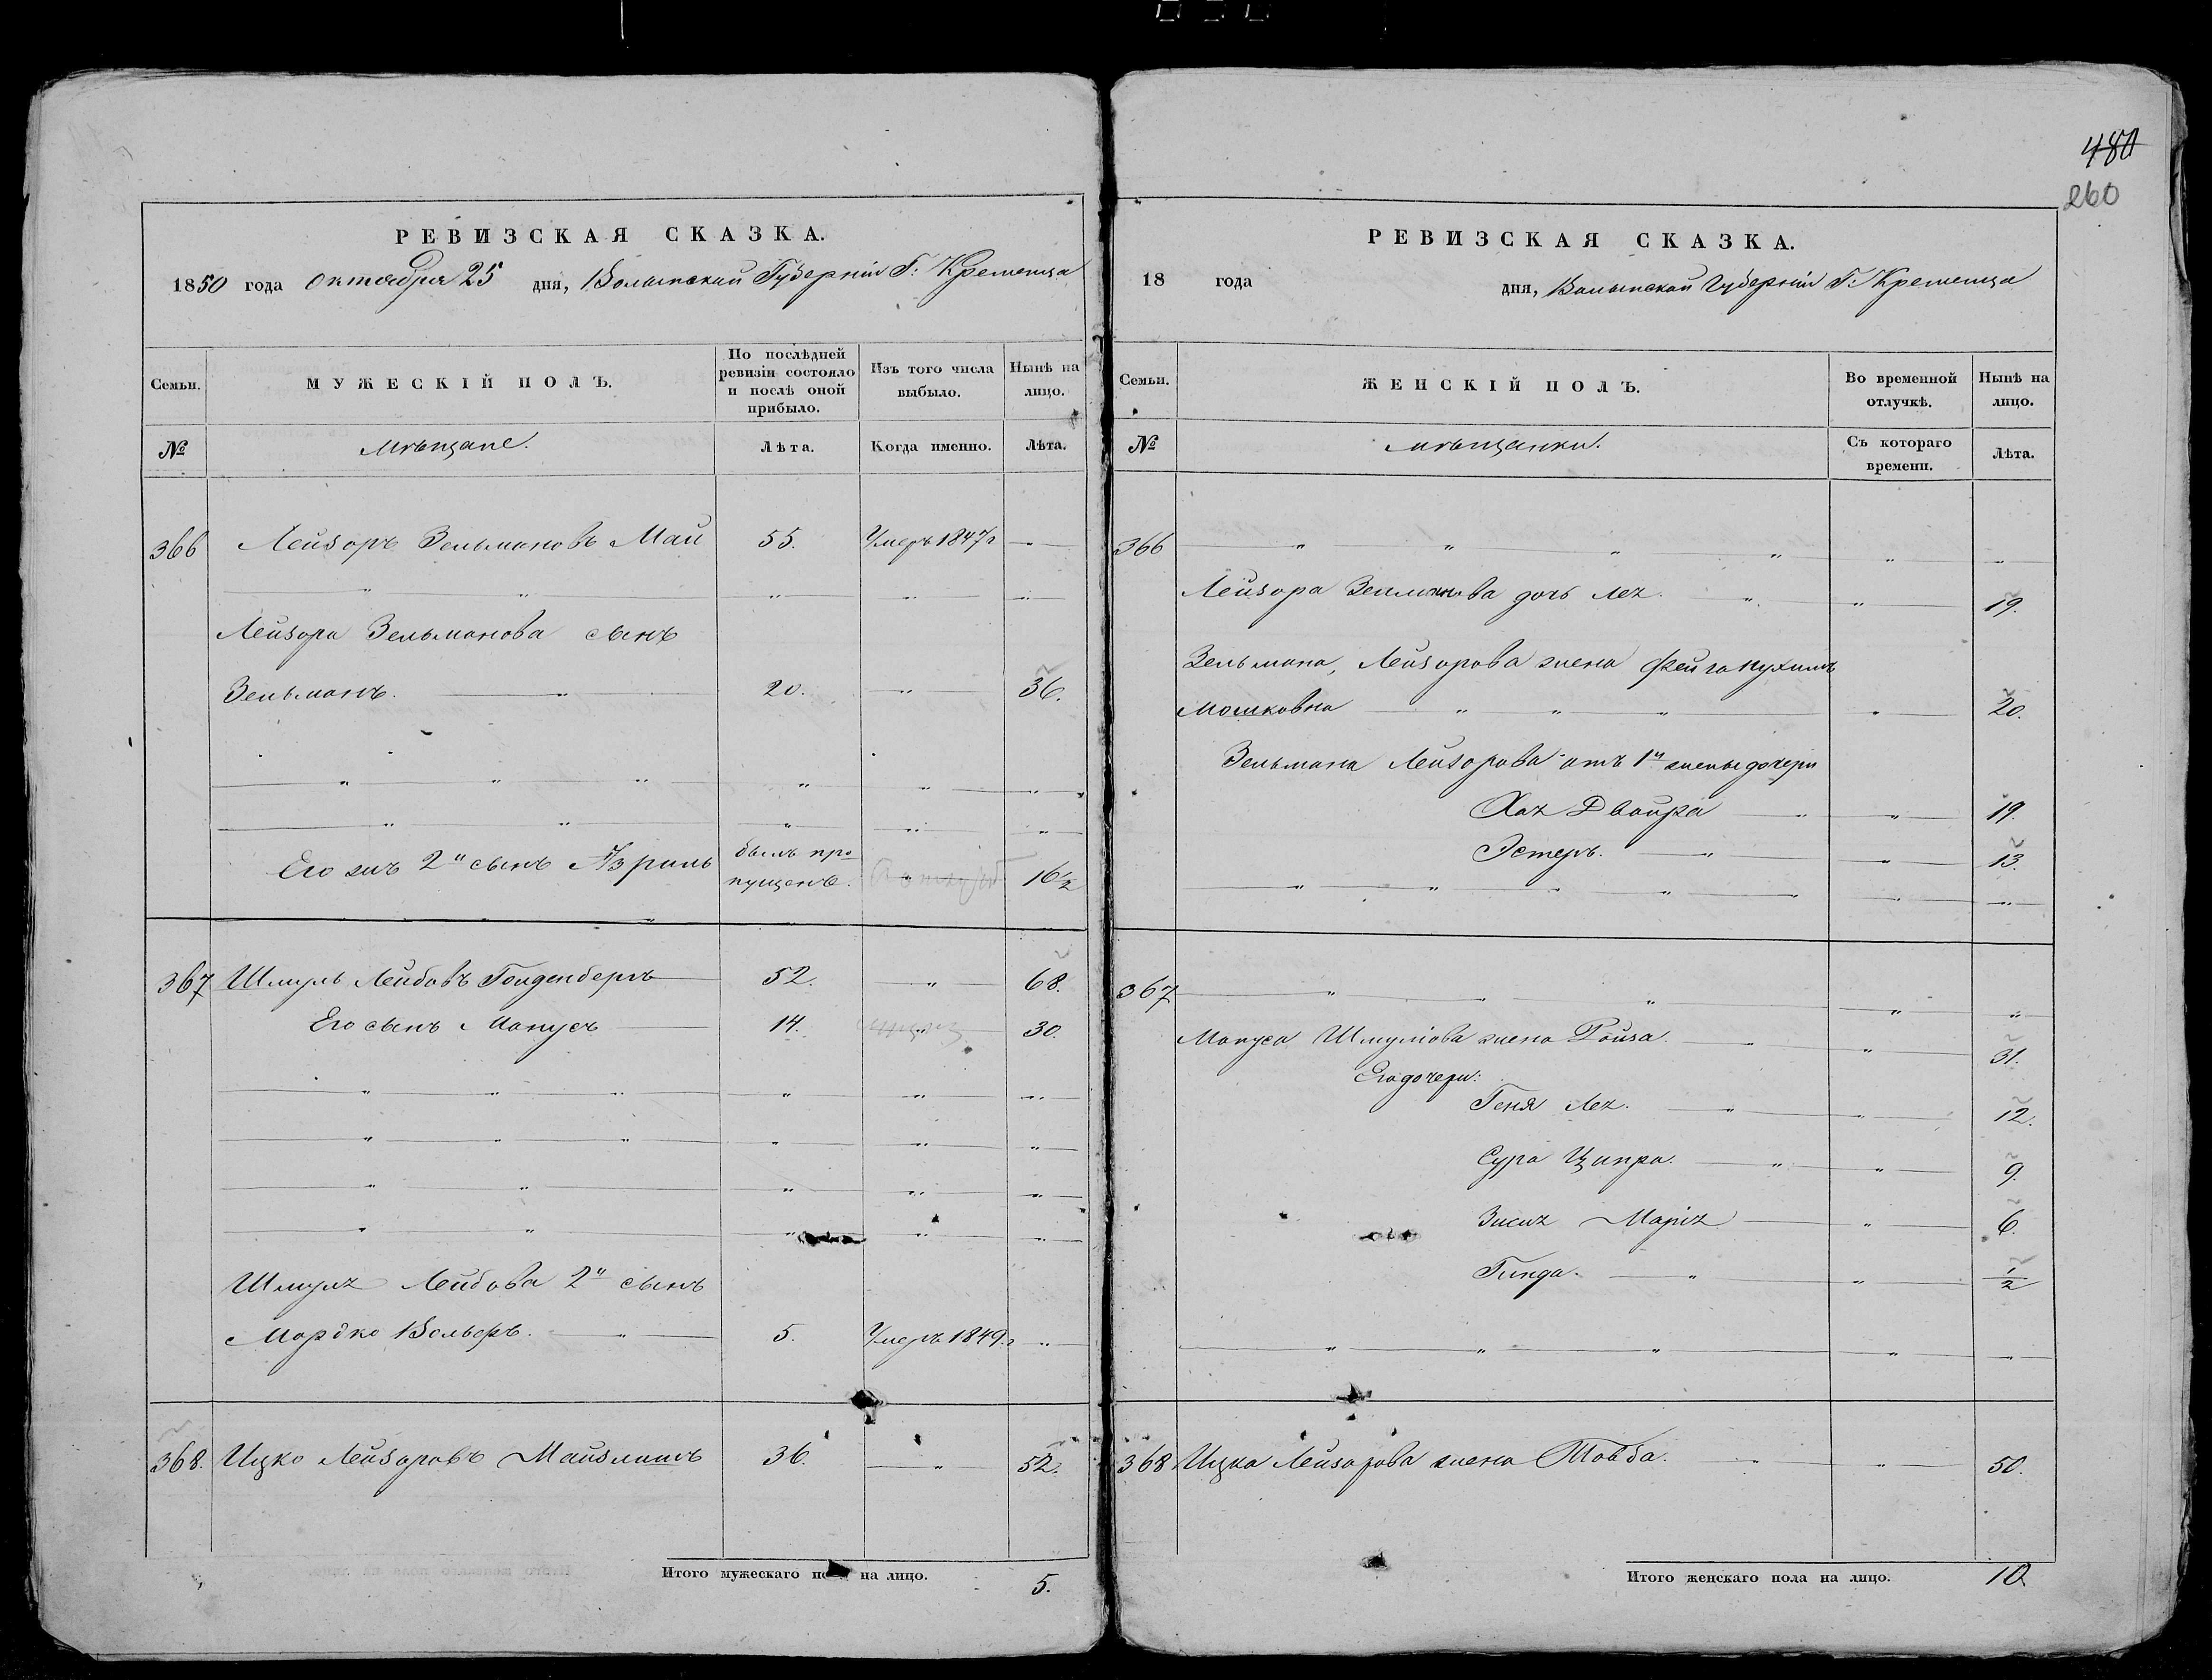 РЕВИЗСКАЯ СКАЗКА.
1850 года Октября 25 дня, Волынской Губерніи Г: Кременца
Семьи. МУЖЕСКІЙ ПОЛЪ. По послѣдней ревизіи состояло и послѣ оной прибыло. Изъ того числа выбыло. Нынѣ на лицо.
№ Мѣщане. Лѣта. Когда именно. Лѣта.
366 Лейзоръ Зельмановъ Май 55. Умеръ 1847г
Лейзора Зельманова сынъ
Зельманъ. 20. 36.
Его жъ 2й сынъ Азриль былъ про
пущенъ. 16 1/2
367 Шмуль Лейбовъ Голденберъ 52. 68.
Его сынъ Манусъ 14. 30.
Шмуля Лейбова 2й сынъ
Мордко Вольфъ. 5. Умеръ 1849.г
368. Ицко Лейзоровъ Майзлишъ 36. 52.
Итого мужескаго пола на лицо. 5.
480
260
РЕВИЗСКАЯ СКАЗКА.
18 года дня, Волынской Губерніи Г: Кременца
Семьи. ЖЕНСКІЙ ПОЛЪ. Во временной отлучкѣ. Нынѣ на лицо.
№ Мѣщанки. Съ котораго времени. Лѣта.
366
Лейзора Зельманова дочь Лея. 19.
Зельмана, Лейзорова жена Фейга
Мошковна 20.
Зельмана Лейзорова отъ 1й жены дочери
Хая Двойра 19.
Эстеръ. 13.
367
Мануса Шмулiова жена Ройза. 31.
Его дочери:
Геня Лея. 12.
Сура Ципра. 9.
Зисля Марiя 6.
Гинда. 1/2
368 Ицка Лейзорова жена Товба. 50.
Итого женскаго пола на лицо. 10